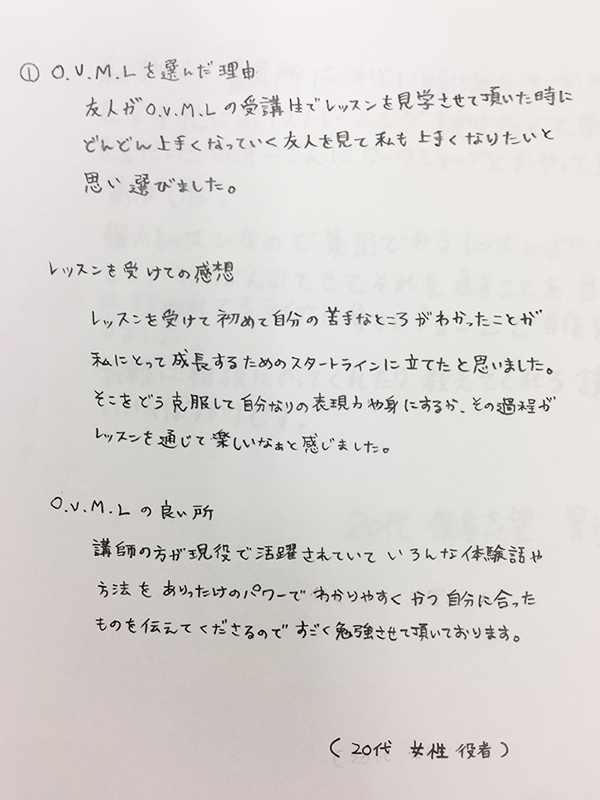 ① O.V.M.Lを選んだ理由
友人がO.V.M.Lの受講生でレッスンを見学させて頂いた時に
どんどん上手くなっていく友人を見て私も上手くなりたいと
思い選びました。
レッスンを受けての感想
レッスンを受けて初めて自分の苦手なところがわかったことが
私にとって成長するためのスタートラインに立てたと思いました。
そこをどう克服して自分なりの表現力や身にするか、その過程が
レッスンを通じて楽しいなぁと感じました。
O.V.M.Lの良い所
講師の方が現役で活躍されていていろんな体験語や
方法をありったけのパワーでわかりやすくかつ自分に合った
ものを伝えてくださるのですごく勉強させて頂いております。
(20代 女性 役者)